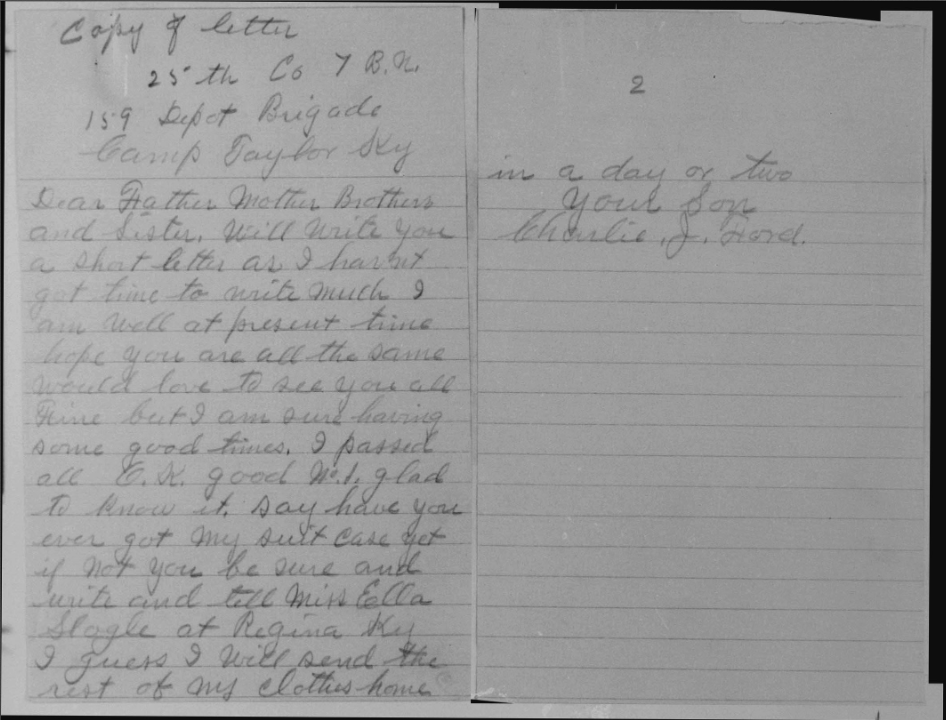 Copy of letter
25th Co 7 B.N.
159 Depot Brigade
Camp Taylor Ky
Dear Father Mother Brothers
and Sister. Will Write you
a short letter as I hav'nt
got time to write much I
am well at present time
hope you are all the same
would love to see you all
Fine but I am sure having
some good times. I passed
all O.K. good No.1. glad
to know it. say have you
ever got my suit case yet
if not you be sure and
write and tell Miss Ella
Slagle at Regina Ky
I guess I will send the
rest of my clothes home
2
in a day or two
Your Son
Charlie. J. Ford.